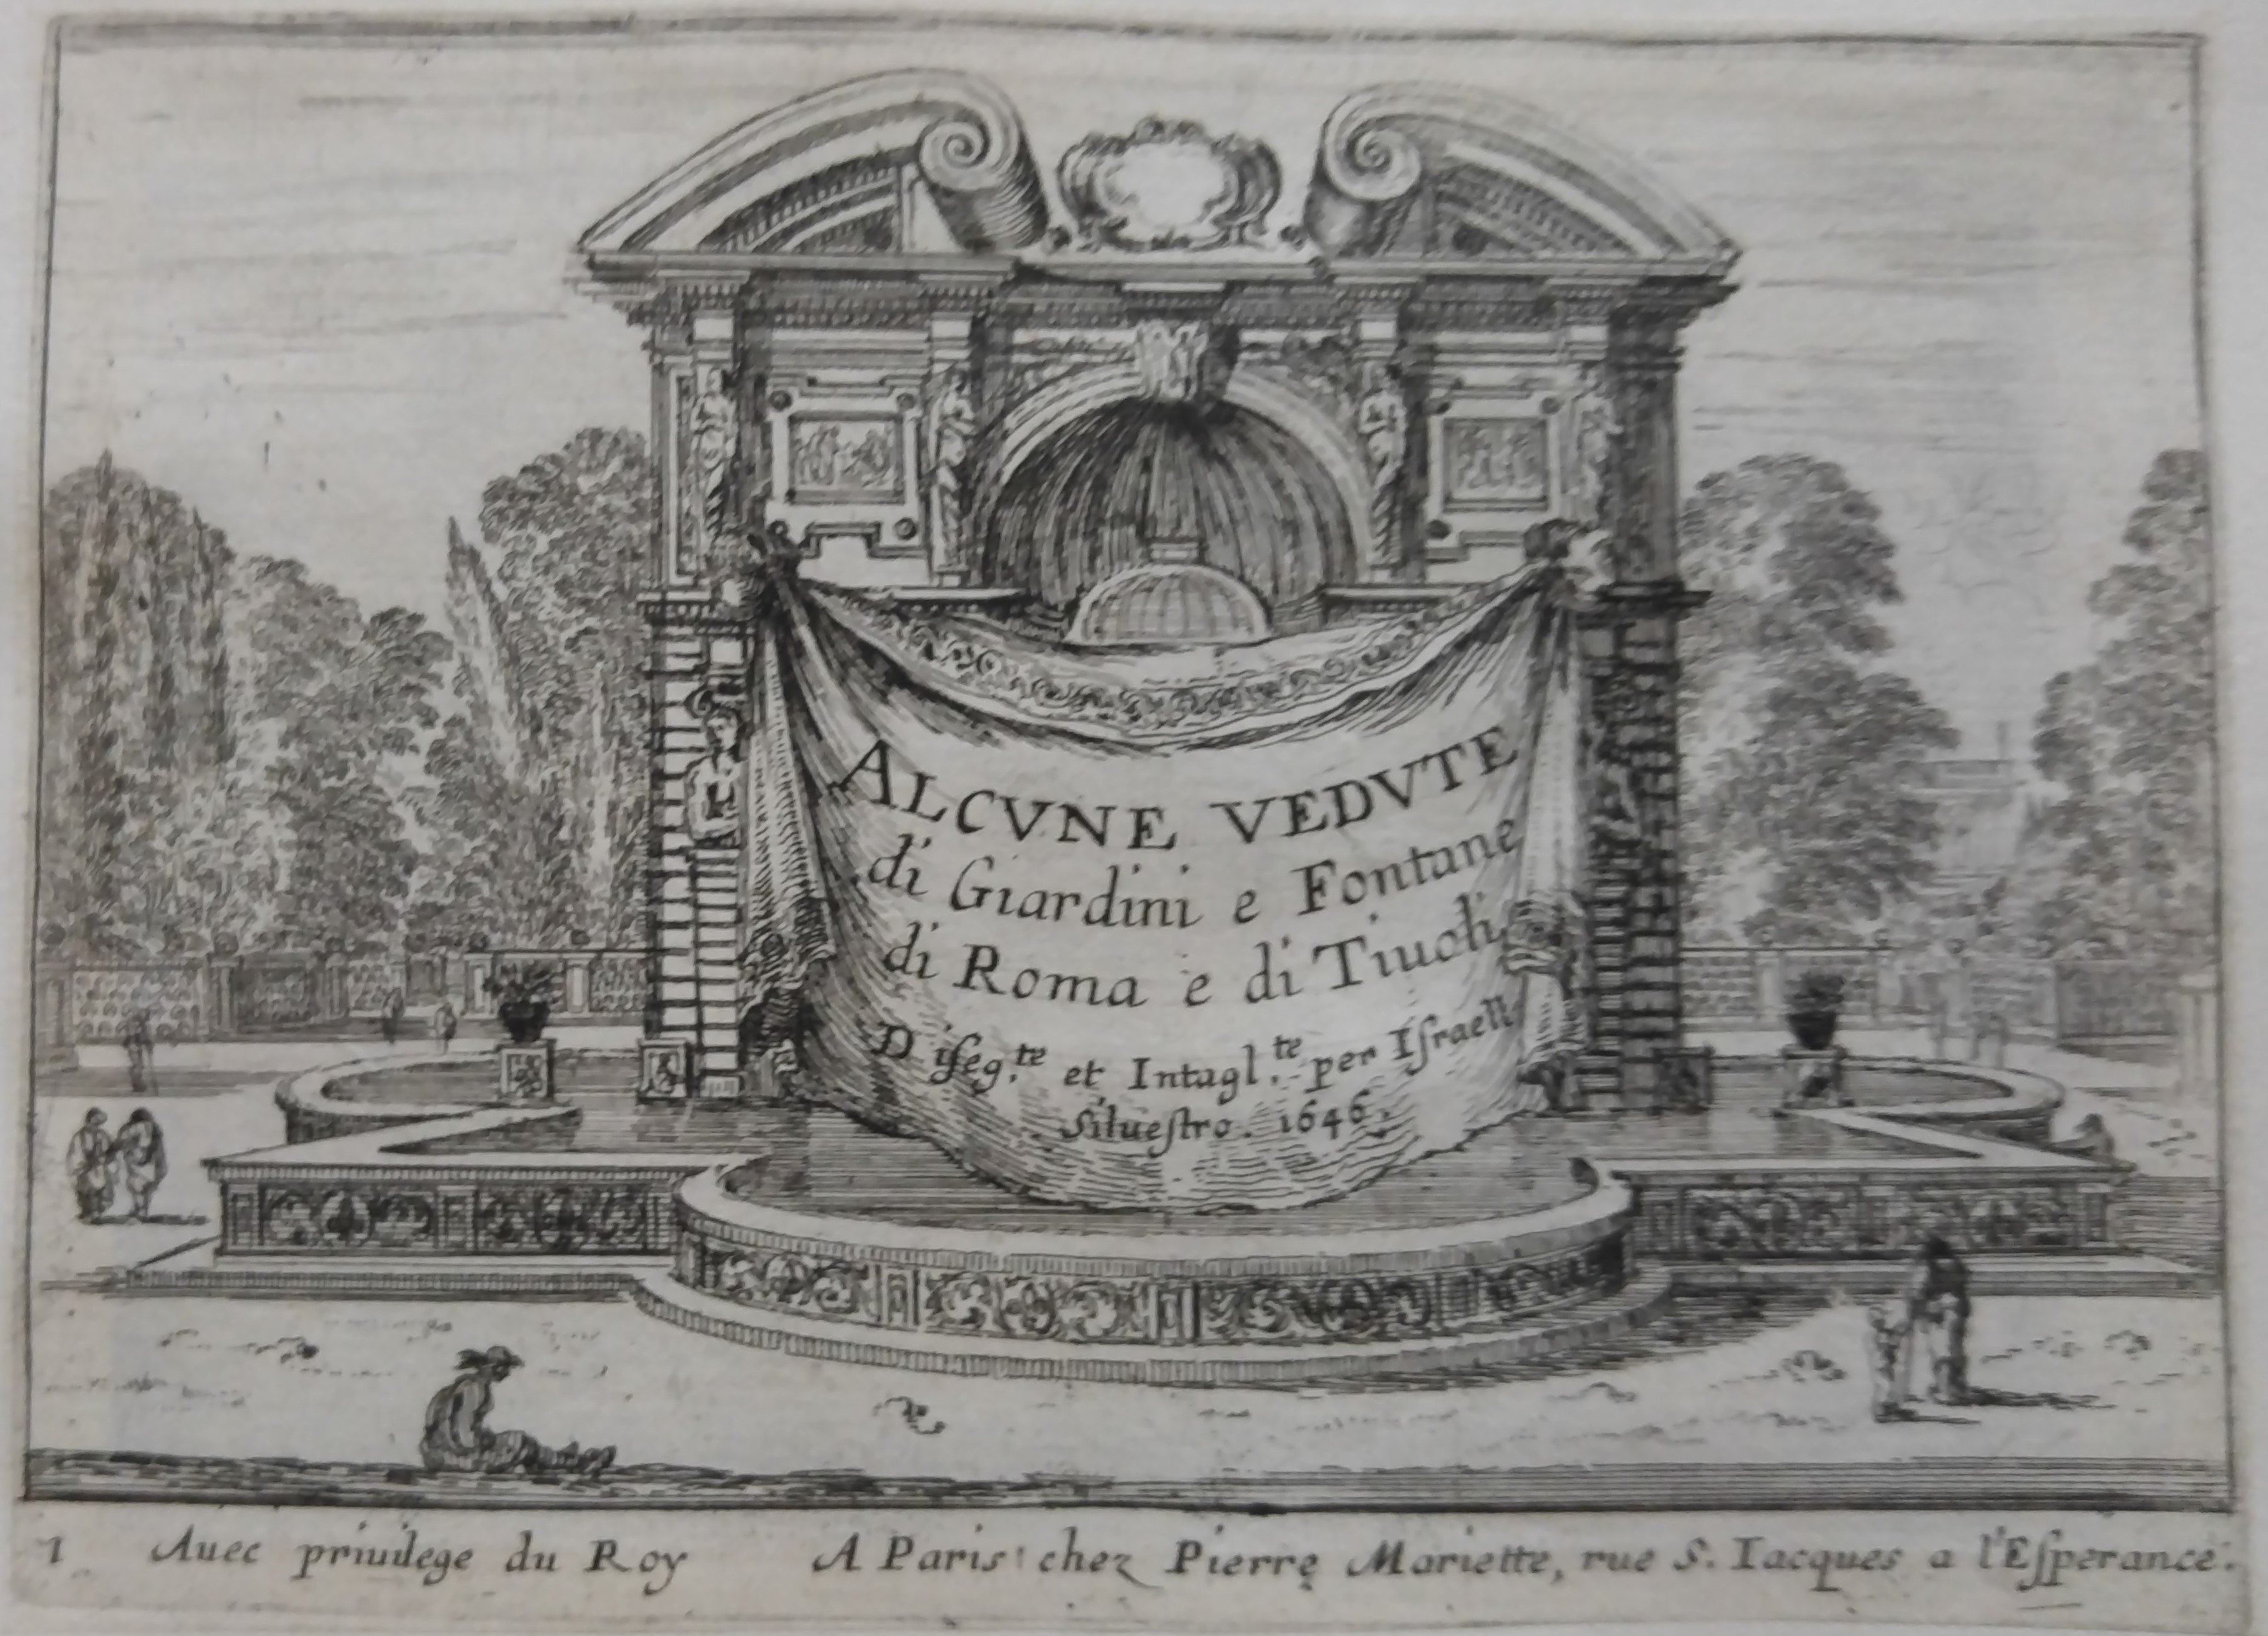 ALCVNE VEDVTE
di Giardini e Fontane
di Roma e di Tiuoli
Diſeg.te et Intagl.te per Iſraell
Silueſtro. 1646.
1 Auec priuilege du Roy A Paris chez Pierre Mariette, rue S. Iacques a l'Eſperance.